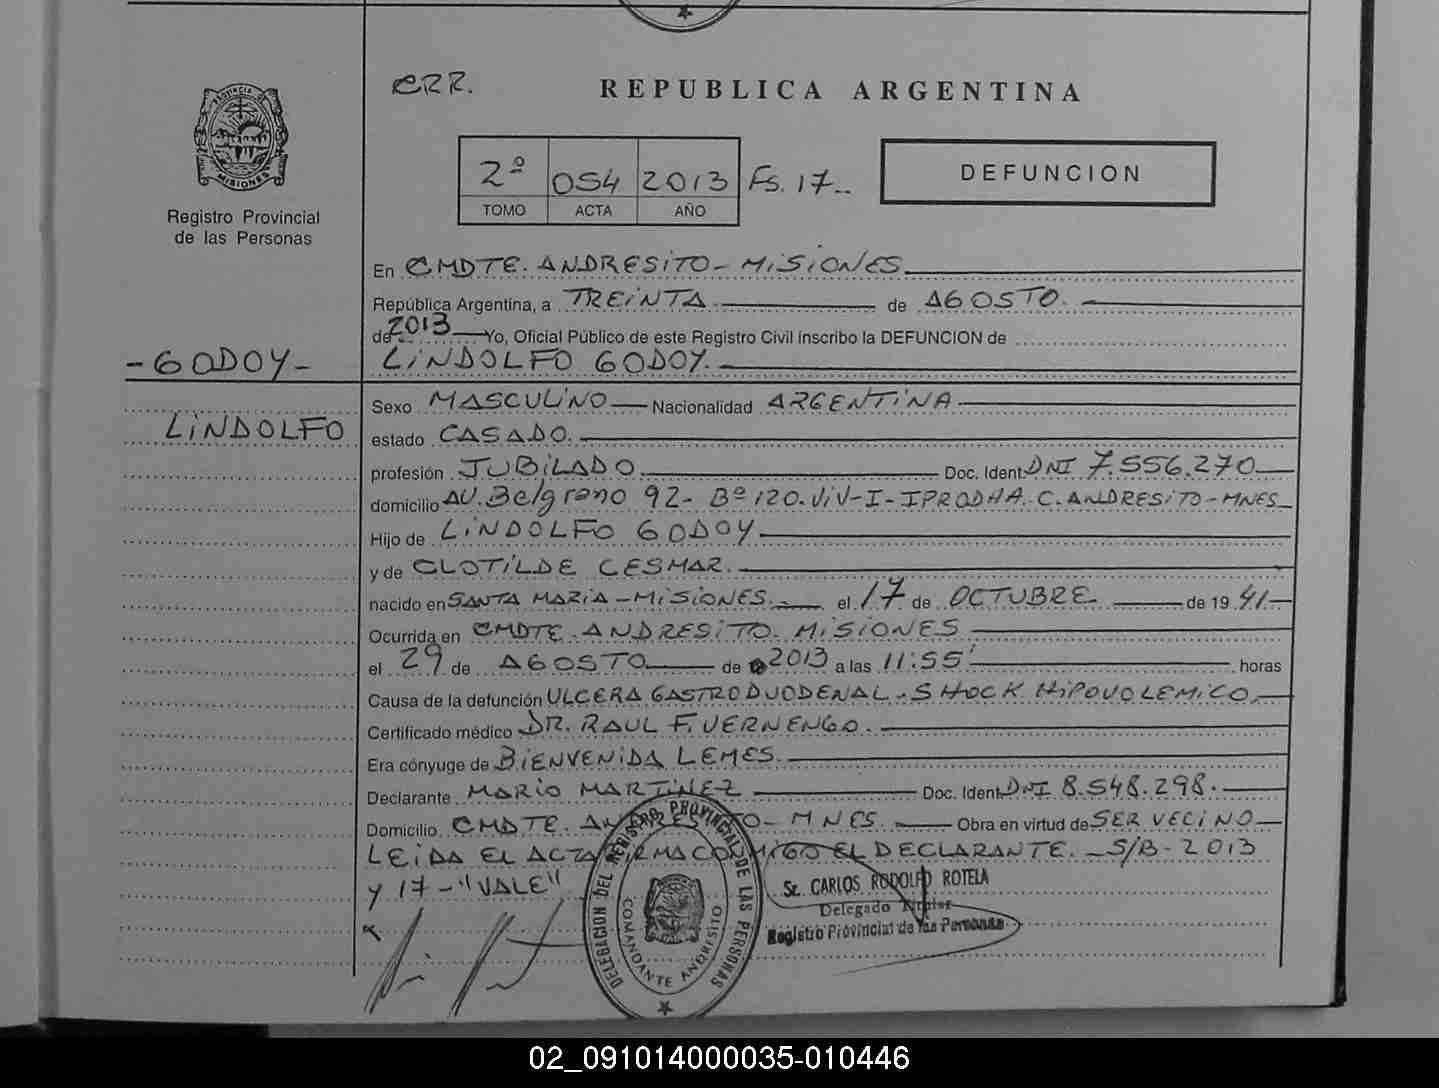 CRR.
REPUBLICA ARGENTINA
PROVINCIA DE
MISIONES
Registro Provincial
de las Personas
2º 054 2013 Fs. 17..
TOMO ACTA AÑO
DEFUNCION
En CMDTE. ANDRESITO - MISIONES
República Argentina, a TREINTA de AGOSTO.
de 2013 Yo, Oficial Público de este Registro Civil inscribo la DEFUNCION de
- GODOY -
LINDOLFO GODOY.
Sexo MASCULINO Nacionalidad ARGENTINA
LINDOLFO
estado CASADO.
profesión JUBILADO. Doc. Ident. DNI 7.556.270
domicilio AV. Belgrano 92 - Bº 120. ViV - I - IPRODHA. C. ANDRESITO - MNES
Hijo de LINDOLFO GODOY
y de CLOTILDE CESMAR.
nacido en SANTA MARIA - MISIONES. el 17 de OCTUBRE de 19 41
Ocurrida en CMDTE. ANDRESITO. MISIONES
el 29 de AGOSTO de 2013 a las 11:55' horas
Causa de la defunción ULCERA GASTRODUODENAL - SHOCK HIPOVOLEMICO.
Certificado médico DR. RAUL F. VERNENGO.
Era cónyuge de BIENVENIDA LEMES.
Declarante MARIO MARTINEZ Doc. Ident. DNI 8.548.298.
Domicilio CMDTE. ANDRESITO - MNES. Obra en virtud de SER VECINO
LEIDA EL ACTA FIRMA CONMIGO EL DECLARANTE. - S/B - 2013
y 17 - "VALE"
DELEGACION DEL REGISTRO PROVINCIAL DE LAS PERSONAS
COMANDANTE ANDRESITO
Sr. CARLOS RODOLFO ROTELA
Delegado Titular
Registro Provincial de las Personas
02_091014000035-010446